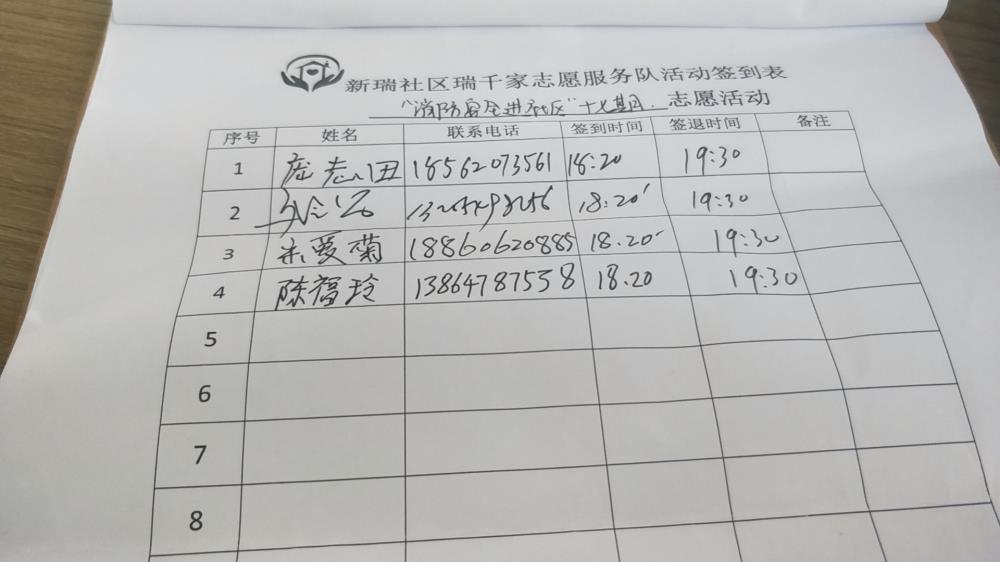 新瑞社区瑞千家志愿服务队活动签到表
"消防安全进社区" 志愿活动
序号 姓名 联系电话 签到时间 签退时间 备注
1 18562073561 18:20 19:30
2 18.20 19:30
3 朱爱菊 18860620885 18.20 19:30
4 陈福玲 13864787538 18.20 19:30
5
6
7
8